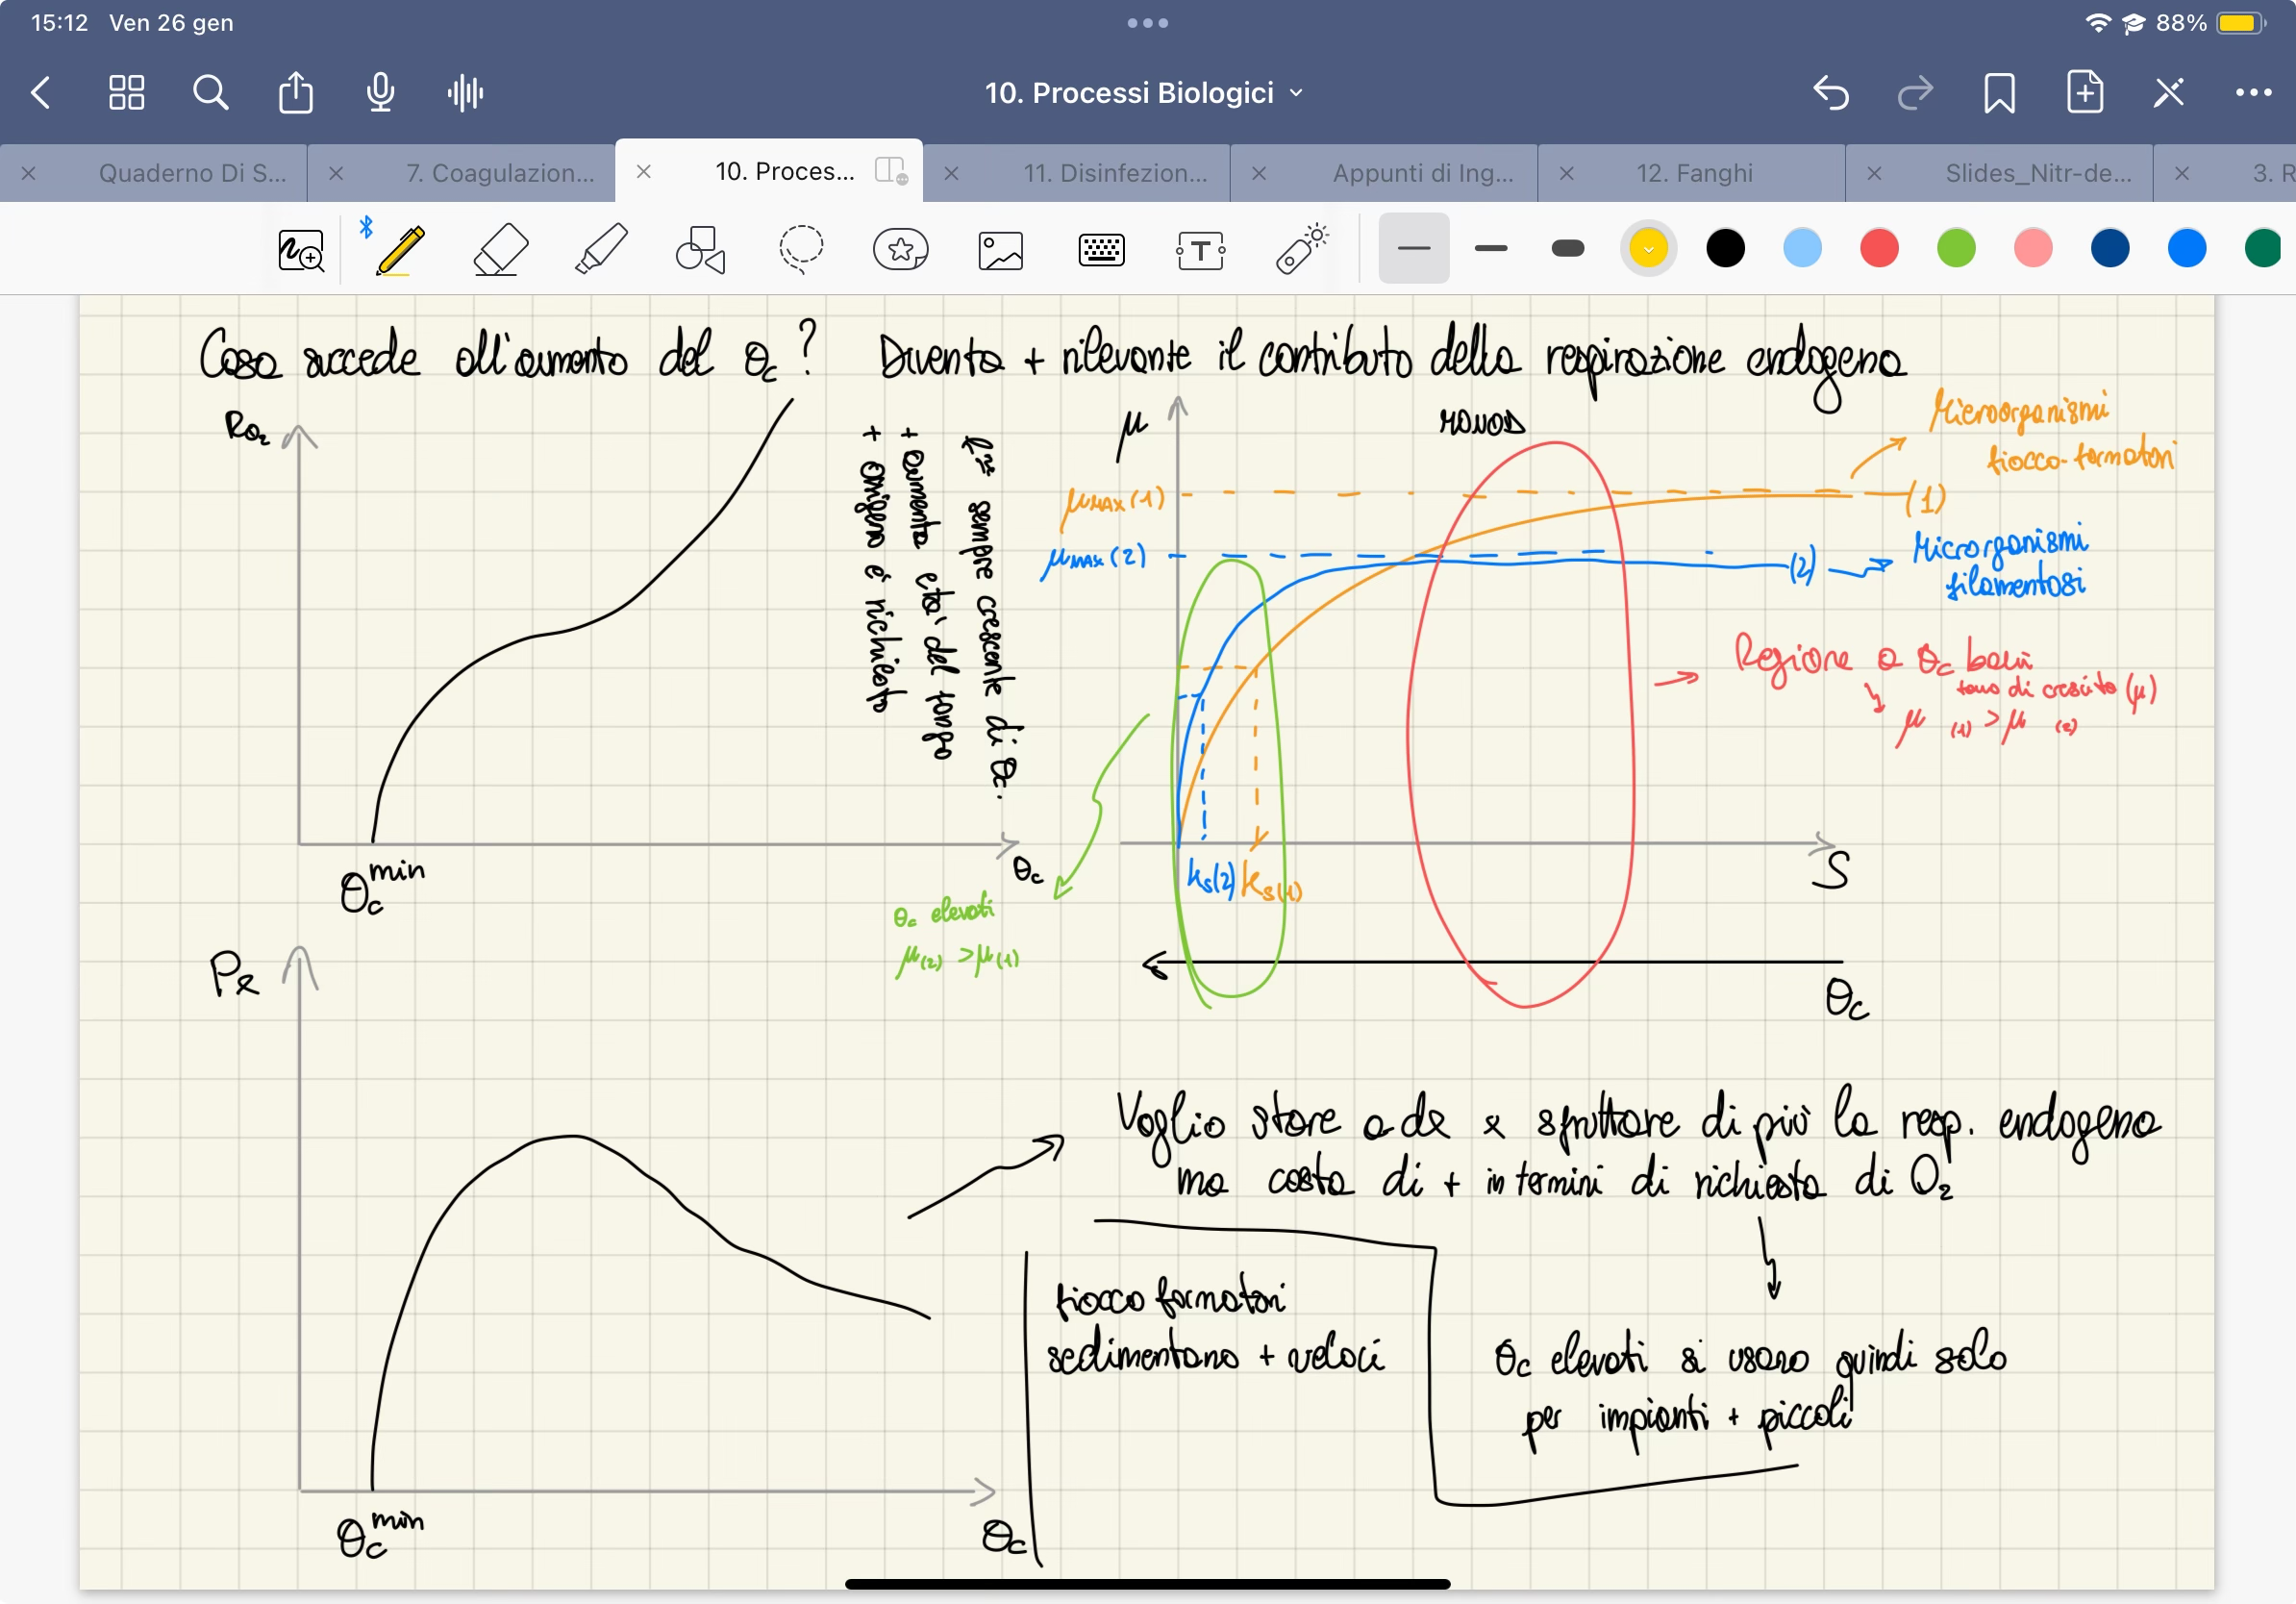 15:12 Ven 26 gen
88%
10. Processi Biologici
Quaderno Di S...
7. Coagulazion...
10. Proces...
11. Disinfezion...
Appunti di Ing...
12. Fanghi
Slides_Nitr-de...
3. R
Cosa succede all'aumento del θc? Diventa + rilevante il contributo della respirazione endogena
RO2
θc min
θc
fz. sempre crescente di θc.
+ aumenta età del fango
+ ossigeno è richiesto
μ
MONOD
μMAX (1)
μMAX (2)
(1)
Microorganismi
fiocco-formatori
(2)
Microrganismi
filamentosi
Regione a θc bassi
tasso di crescita (μ)
μ (1) > μ (2)
ks(2)
ks(1)
S
θc
θc elevati
μ(2) > μ(1)
Px
θc min
θc
Voglio stare a dx x sfruttare di più la resp. endogena
ma costa di + in termini di richiesta di O2
fiocco formatori
sedimentano + veloci
θc elevati si usano quindi solo
per impianti + piccoli